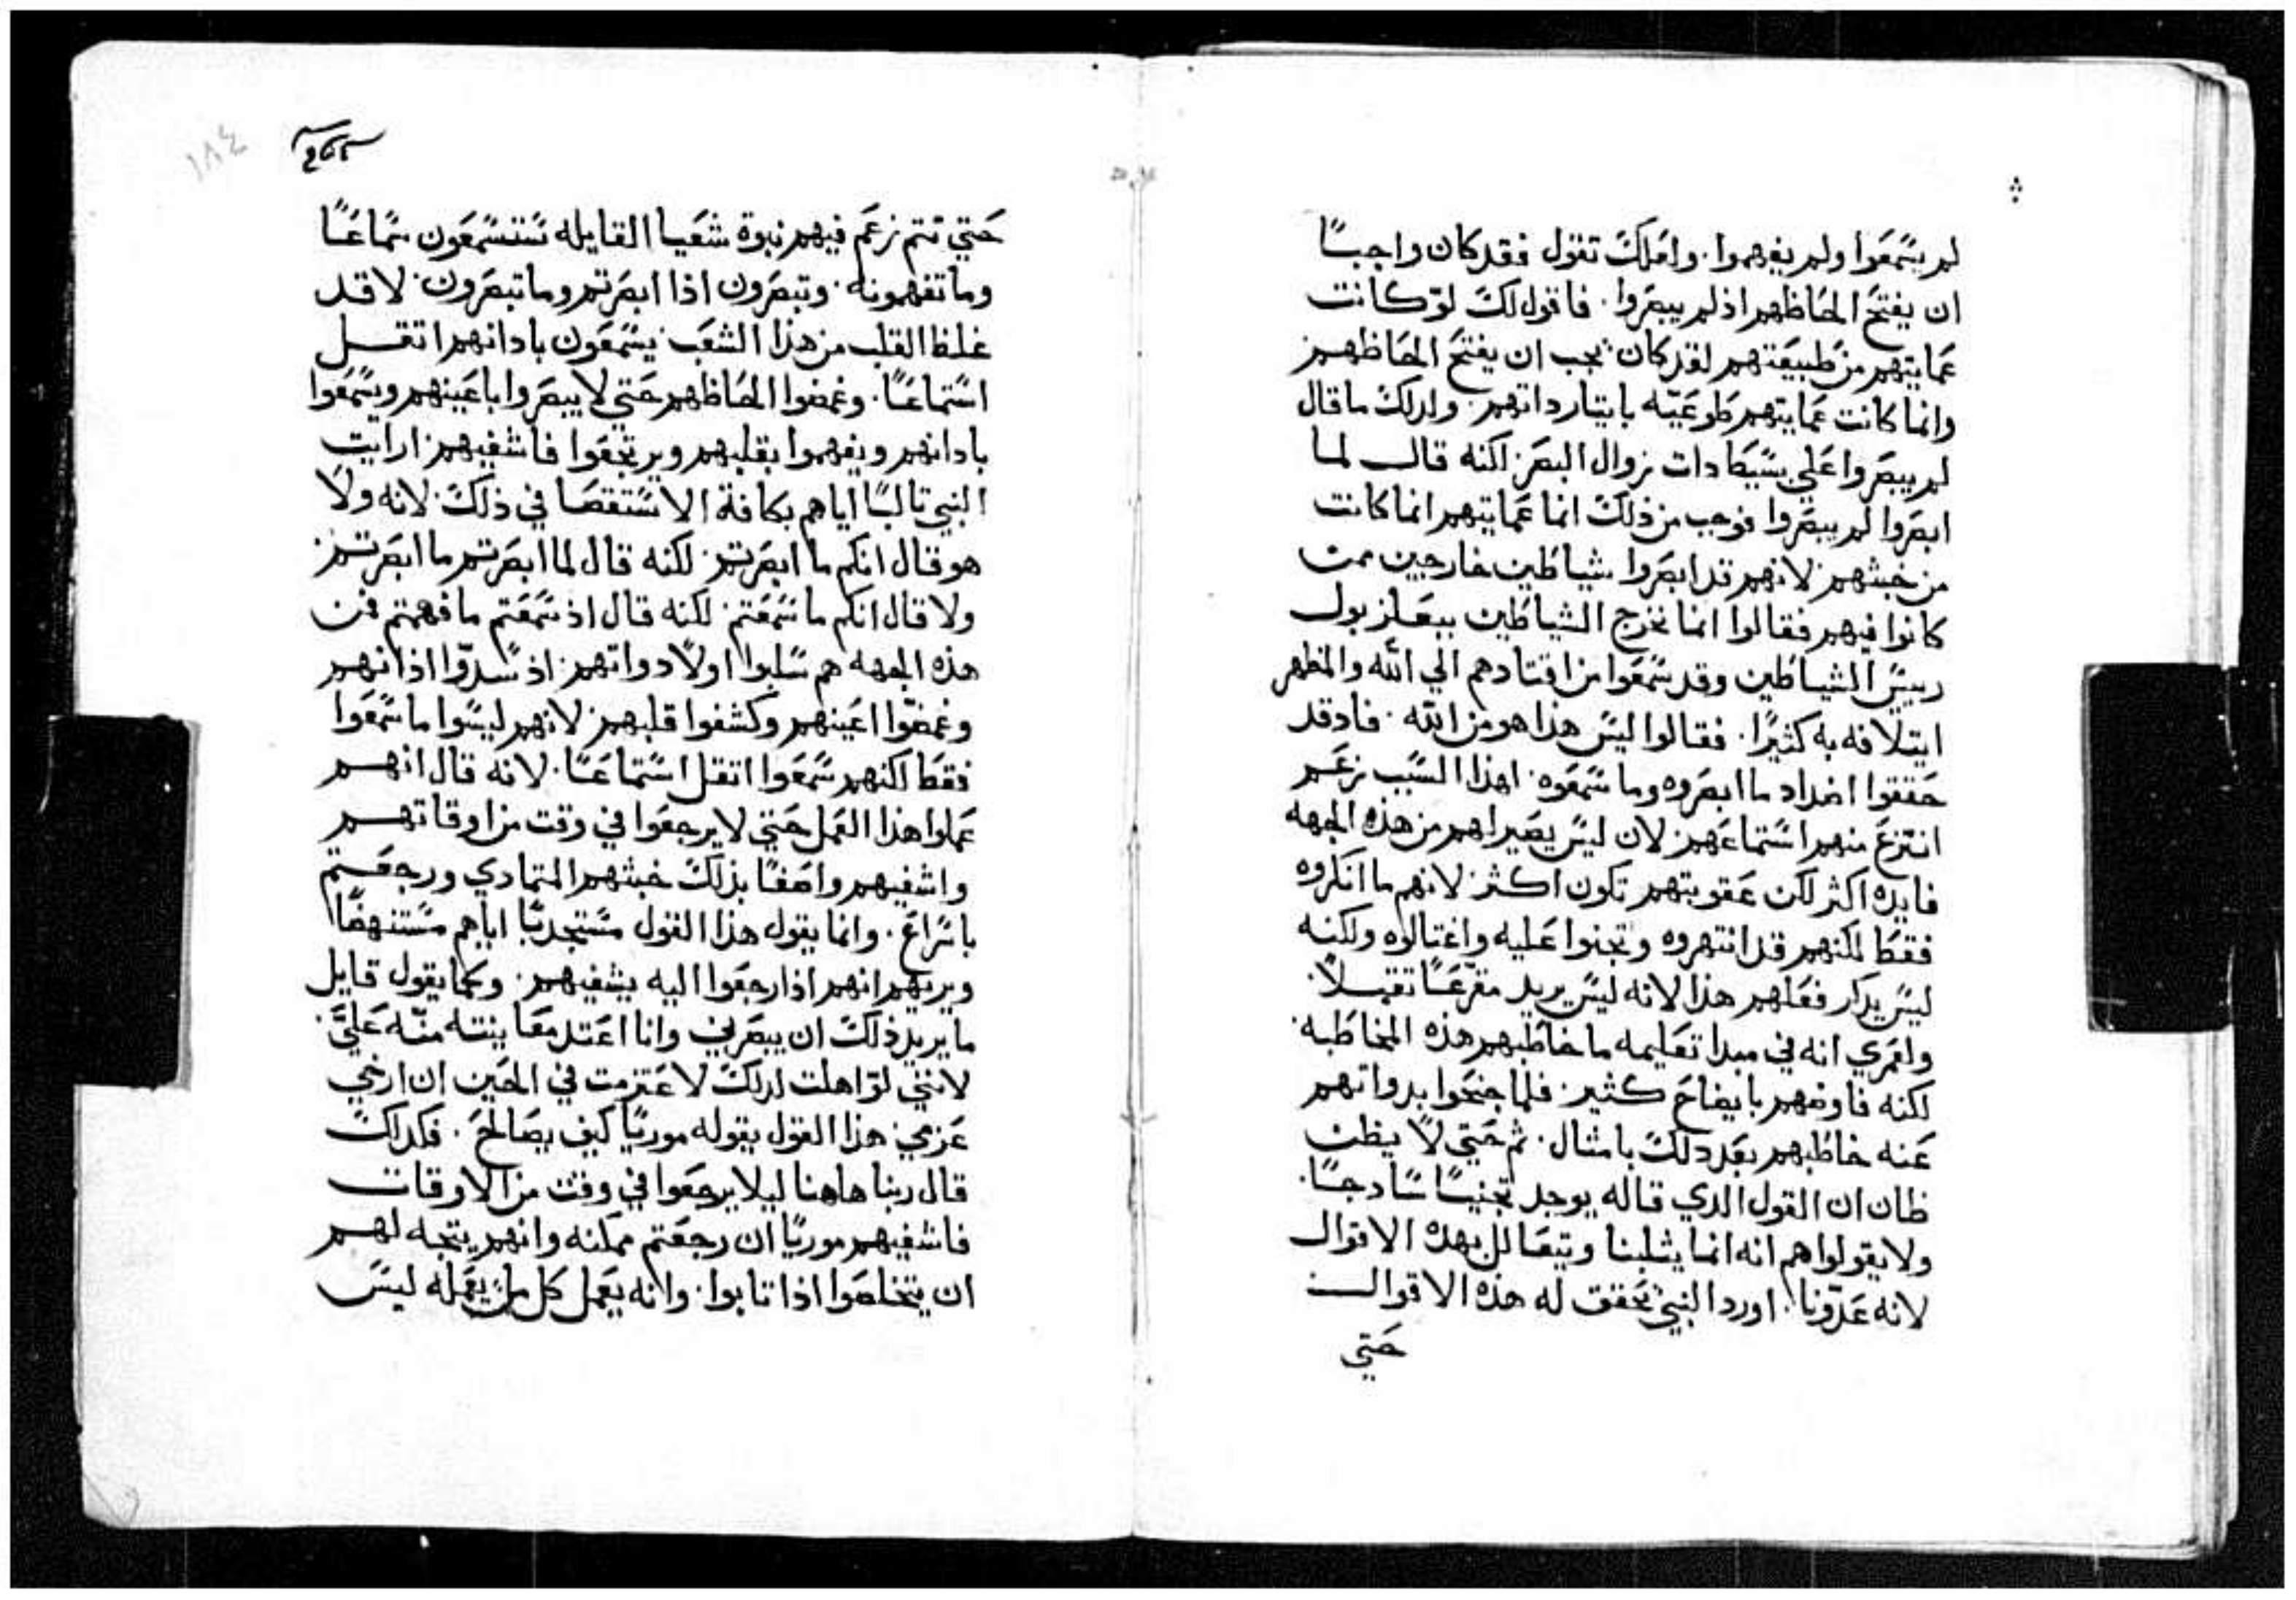 لم يسمعوا ولم يفهموا. ولعلك تقول فقد كان واجبًا
ان يفتح الحاظهم اذ لم يبصروا. فاقول لك لو كانت
عمايتهم من طبيعتهم لقد كان يجب ان يفتح الحاظهم
وانما كانت عمايتهم طوعيّه بايثار داتهم. ولدلك ما قال
لم يبصروا علي بسيط دات زوال البصر لكنه قال لما
ابصروا لم يبصروا فوجب من ذلك انما عمايتهم انما كانت
من خبثهم لانهم قد ابصروا شياطين خارجين ممن
كانوا فيهم فقالوا انما يخرج الشياطين ببعلزبول
رييس الشياطين وقد سمعوا من اقتادهم الي الله والمظهر
ايتلافه به كثيرًا. فقالوا ليس هذا هو من الله. فاد قد
حققوا اضداد ما ابصروه وما سمعوه. لهذا السبب زعم
انتزع منهم استماعهم لان ليس يصير لهم من هذه الجهه
فايده اكثر لكن عقوبتهم تكون اكثر لانهم ما انكروه
فقط لكنهم قد انتهروه وتجنوا عليه واغتالوه ولكنه
ليس يدكر فعلهم هذا لانه ليس يريد مقرعًا ثقيلاً.
ولعمري انه في مبدا تعليمه ما خاطبهم هذه المخاطبه.
لكنه فاوضهم بايضاح كثير. فلما جنحوا بدواتهم
عنه خاطبهم بعد دلك بامثال. ثم حتي لا يظن
ظان ان القول الدي قاله يوجد تجنيسًا سادجًا.
ولا يقولوا هم انه انما يثلبنا ويتعالل بهده الاقوال
لانه عدّونا. اورد النبي تحقق له هذه الاقوال
حتي
١٨٤
حتي تتم زعم فيهم نبوة شعيا القايله ستسمعون سماعًا
وما تفهمونه. وتبصرون اذا ابصرتم وما تبصرون. لا قد
غلظ القلب من هذا الشعب يسمعون بادانهم اتقل
استماعًا. وغمضوا الحاظهم حتي لا يبصروا باعينهم ويسمعوا
بادانهم ويفهموا بقلبهم ويرتجعوا فاشفيهم ارايت
النبي ثالبًا اياهم بكافة الاستقصا في ذلك لانه ولا
هو قال انكم ما ابصرتم. لكنه قال لما ابصرتم ما ابصرتم
ولا قال انكم ما سمعتم. لكنه قال اذ سمعتم ما فهمتم فمن
هذه الجهه هم سلبوا اولاً دواتهم. اذ سدّوا اذانهم
وغمضّوا اعينهم وكشفوا قلبهم لانهم ليسوا ما سمعوا
فقط لكنهم سمعوا اتقل استماعًا. لانه قال انهم
عملوا هذا العمل حتي لا يرجعوا في وقت من اوقاتهم
واشفيهم واصفًا بذلك خبثهم المتمادي ورجعتم
باسراع. وانما يقول هذا القول مستجدبًا اياهم مستنهضًا
ويريهم انهم اذا رجعوا اليه يشفيهم. وكما يقول قايل
ما يريد ذلك ان يبصرني وانا اعتد معاينته منّه عليَّ.
لانني لو اهلت لدلك لاعتزمت في الحين ان ارضي
عزمي. هذا القول يقوله موريًا كيف يصالح. فكدلك
قال ربنا هاهنا ليلا يرجعوا في وقت من الاوقات
فاشفيهم موريًا ان رجعتم ممكنه وانهم يتجه لهم
ان يتخلصوا اذا تابوا. وانه يعمل كل ما يعمله ليس